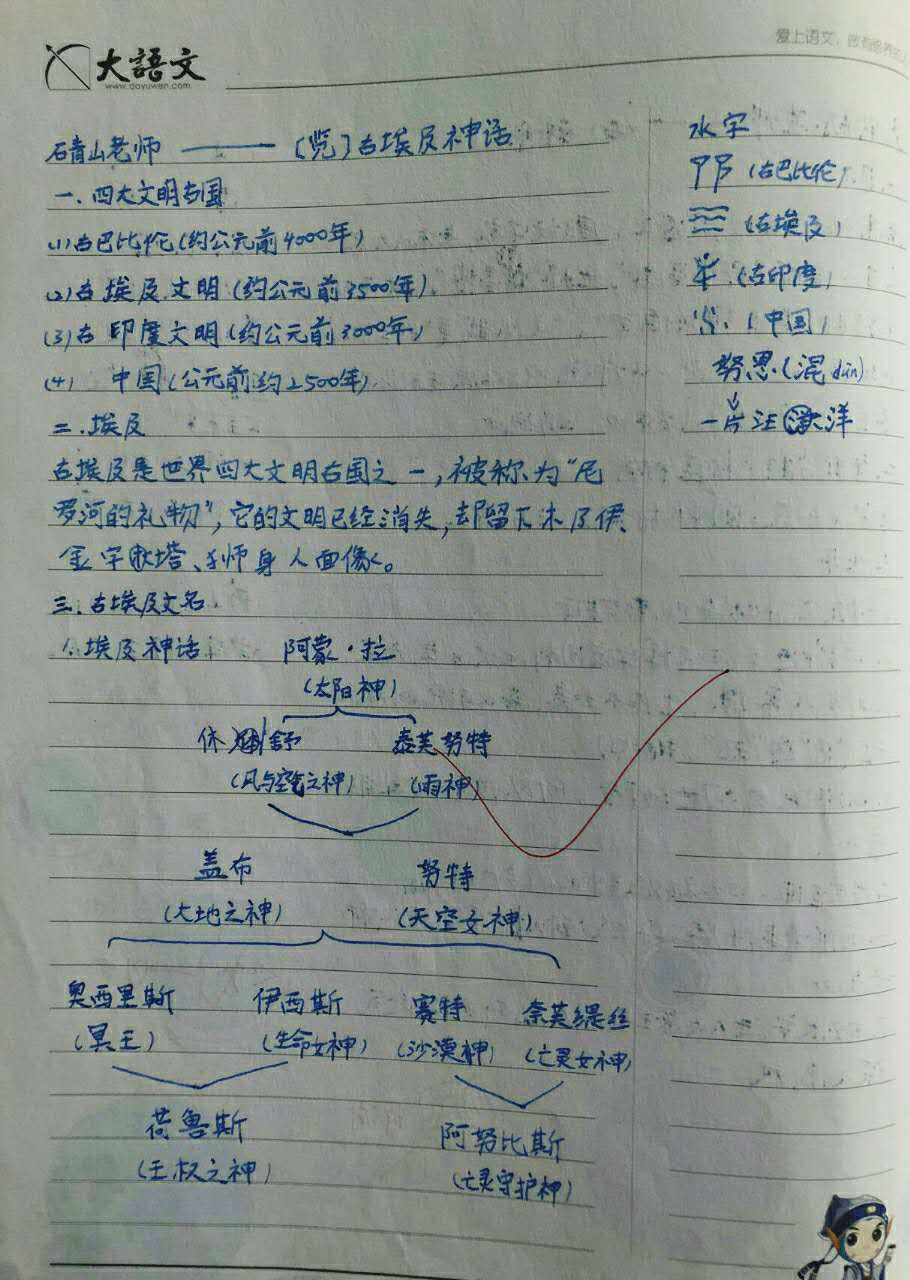 大語文
www.dayuwen.com
爱上语文,
石青山老师 ——— (览)古埃及神话
一.四大文明古国
(1)古巴比伦(约公元前4000年)
(2)古埃及文明(约公元前3500年)
(3)古印度文明(约公元前3000年)
(4) 中国(公元前约2500年)
二.埃及
古埃及是世界四大文明古国之一,被称为“尼
罗河的礼物”,它的文明已经消失,却留下木乃伊、
金字塔、狮身人面像。
三.古埃及文名
1.埃及神话 阿蒙·拉
(太阳神)
休舒 泰芙努特
(风与空气之神) (雨神)
盖布 努特
(大地之神) (天空女神)
奥西里斯 伊西斯 赛特 奈芙缇丝
(冥王) (生命女神) (沙漠神) (亡灵女神)
荷鲁斯 阿努比斯
(王权之神) (亡灵守护神)
水字
(古巴比伦)
(古埃及)
(古印度)
(中国)
努恩(混dùn)
一片汪洋